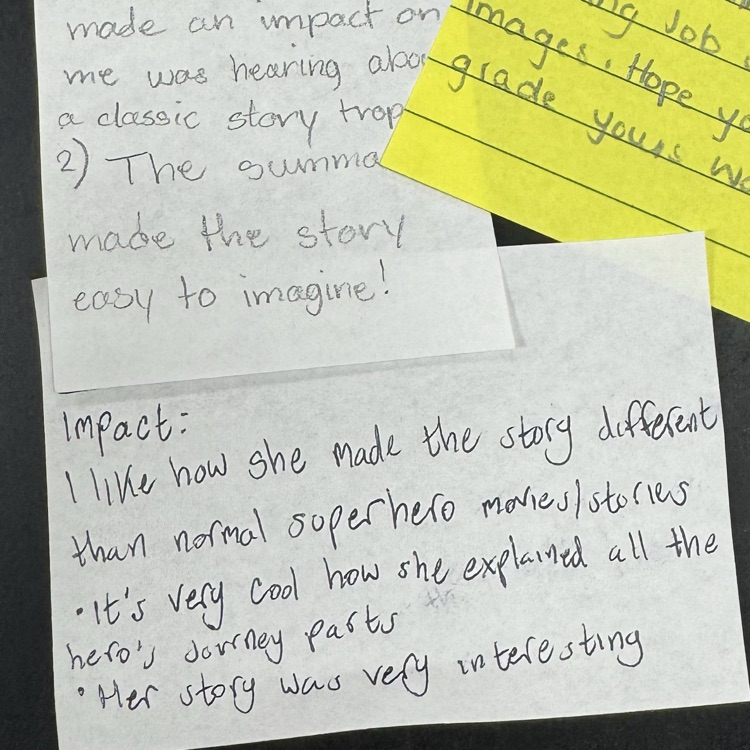 made an impact on
me was hearing abou
a classic story trop
2) The summa
made the story
easy to imagine!
ng Job
images. Hope yo
grade yours wa
Impact:
I like how she made the story different
than normal superhero movies/stories
• It's very cool how she explained all the
hero's Journey parts
• Her story was very interesting